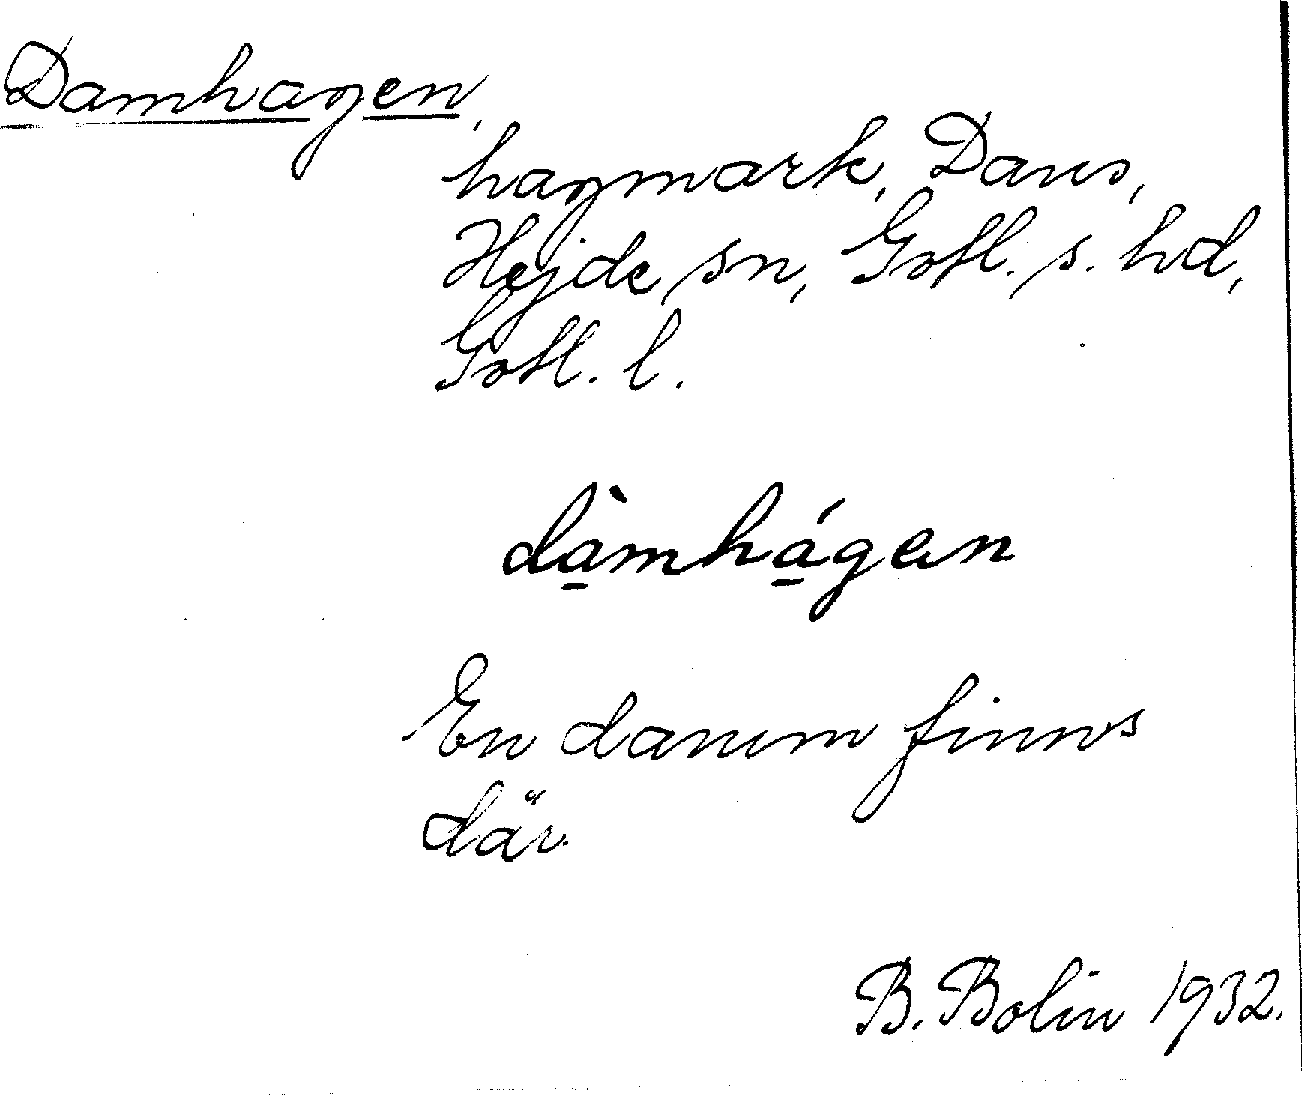 Damhagen,
hagmark, Daus,
Hejde sn, Gotl. s. hd,
Gotl. l.
dạ̀mhá̱gan
En damm finns
där.
B. Bolin 1932.